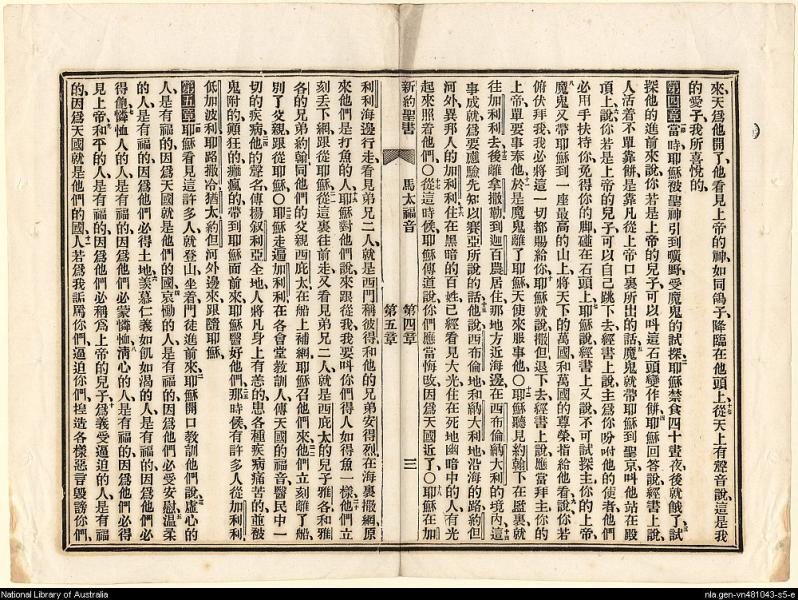 來天爲他開了他看見上帝的神如同鴿子降臨在他頭上、從天上有聲音說、這是我
的愛子、我所喜悅的、
第四章 當時耶穌被聖神引到曠野、受魔鬼的試探、耶穌禁食四十晝夜、後就餓了、試
探他的進前來說、你若是上帝的兒子、可以叫這石頭變作餅、耶穌回答說、經書上說、
人活着不單靠餅、是靠凡從上帝口裏所出的話、魔鬼就帶耶穌到聖京、叫他站在殿
頂上、說、你若是上帝的兒子、可以自己跳下去、經書上說、主爲你吩咐他的使者、他們
必用手扶持你、免得你的脚碰在石頭上、耶穌說、經書上又說、不可試探主你的上帝、
魔鬼又帶耶穌到一座最高的山上、將天下的萬國和萬國的尊榮、指給他看、說、你若
俯伏拜我、我必將這一切都賜給你、耶穌就說、撒但退下去、經書上說、應當拜主你的
上帝、單要事奉他、於是魔鬼離了耶穌、天使來服事他、〇耶穌聽見約翰下在監裏、就
往加利利去、後離拿撒勒、到迦百農居住、那地方近海邊、在西布倫納大利的境內、這
事成就、爲要應驗先知以賽亞所說的話、他說、西布倫地和納大利地、沿海的路、約但
河外、異邦人的加利利、住在黑暗的百姓、已經看見大光、住在死地幽暗中的人、有光
起來照着他們、〇從這時候、耶穌傳道說、你們應當悔改、因爲天國近了、〇耶穌在加
新約聖書 馬太福音 第四章 第五章 三
利利海邊行走、看見弟兄二人、就是西門稱彼得、和他的兄弟安得烈、在海裏撒網、原
來他們是打魚的人、耶穌對他們說、來跟從我、我要叫你們得人如得魚一樣、他們立
刻丟下網、跟從耶穌、從這裏往前走、又看見弟兄二人、就是西庇太的兒子雅各、和雅
各的兄弟約翰、同他們的父親西庇太在船上補網、耶穌召他們來、他們立刻離了船、
別了父親、跟從耶穌、〇耶穌走遍加利利、在各會堂教訓人、傳天國的福音、醫民中一
切的疾病、他的聲名傳揚叙利亞全地、人將凡身上有恙的、患各種疾病痛苦的、並被
鬼附的、癲狂的、癱瘋的、帶到耶穌面前來、耶穌醫好他們、那時候、有許多人從加利利、
低加波利、耶路撒冷、猶太、約但河外邊、來跟隨耶穌、
第五章 耶穌看見這許多人、就登山坐着、門徒進前來、耶穌開口教訓他們說、虛心的
人是有福的、因爲天國就是他們的國、哀慟的人是有福的、因爲他們必受安慰、溫柔
的人是有福的、因爲他們必得土地、羨慕仁義如飢如渴的人是有福的、因爲他們必
得飽、憐恤人的人是有福的、因爲他們必蒙憐恤、清心的人是有福的、因爲他們必得
見上帝、和平的人是有福的、因爲他們必稱爲上帝的兒子、爲義受逼迫的人是有福
的、因爲天國就是他們的國、人若爲我詬罵你們、逼迫你們、揑造各樣惡言毀謗你們、
National Library of Australia
nla.gen-vn481043-s5-e